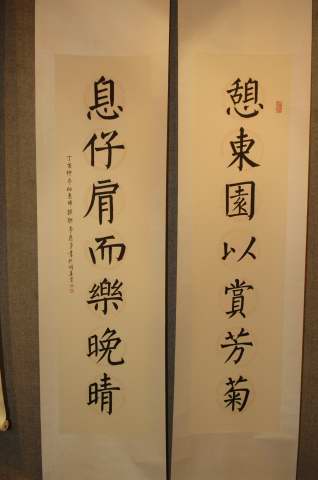 憩東園以賞芳菊
息仔肩而樂晚晴